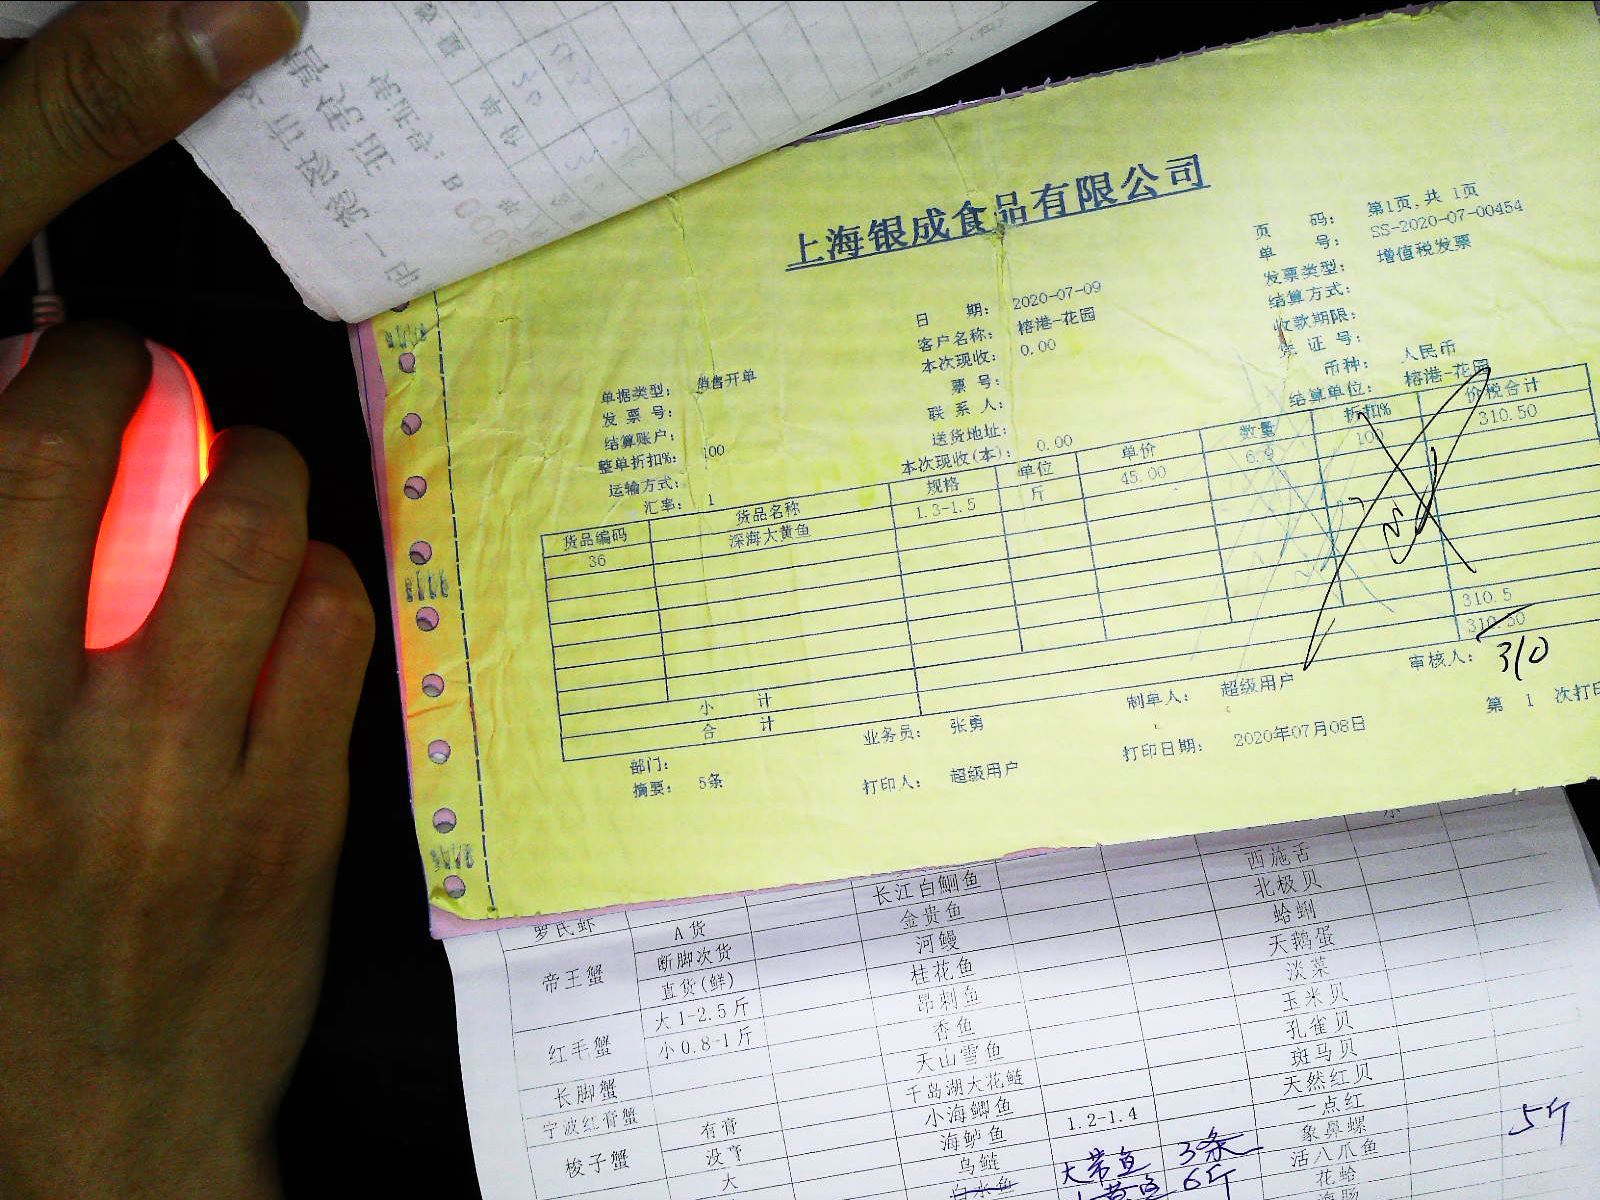 上海银成食品有限公司
页 码: 第1页,共 1页
单 号: SS-2020-07-00454
发票类型: 增值税发票
结算方式:
收款期限:
凭 证 号:
币种: 人民币
结算单位: 榕港-花园
日 期: 2020-07-09
客户名称: 榕港-花园
本次现收: 0.00
票 号:
联 系 人:
送货地址:
本次现收(本): 0.00
单据类型: 销售开单
发 票 号:
结算账户:
整单折扣%: 100
运输方式:
汇率: 1
货品编码 货品名称 规格 单位 单价 数量 折扣% 价税合计
36 深海大黄鱼 1.3-1.5 斤 45.00 6.9 100 310.50
小 计 310.5
合 计 310.50
310
部门: 业务员: 张勇 制单人: 超级用户 审核人:
摘要: 5条 打印人: 超级用户 打印日期: 2020年07月08日 第 1 次打印
西施舌
长江白鮰鱼 北极贝
罗氏虾 A货 金贵鱼 蛤蜊
帝王蟹 断脚次货 河鳗 天鹅蛋
直货(鲜) 桂花鱼 淡菜
红毛蟹 大1-2.5斤 昂刺鱼 玉米贝
小0.8-1斤 香鱼 孔雀贝
长脚蟹 天山雪鱼 斑马贝
宁波红膏蟹 千岛湖大花鲢 天然红贝
梭子蟹 有膏 小海鲫鱼 1.2-1.4 一点红
没膏 海鲈鱼 象鼻螺 5斤
大 乌鲢 大带鱼 3条 活八爪鱼
白水鱼 6斤 花蛤
海肠